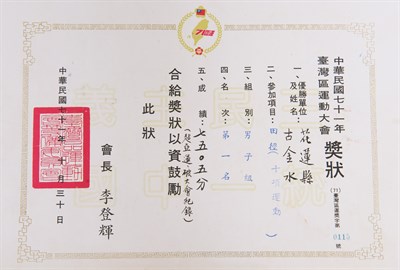 中華民國七十一年
臺灣區運動大會
獎狀
(71)臺灣區運獎字第
0115
號
一、優勝單位及姓名：花蓮縣
古金水
二、參加項目：田徑(十項運動)
三、組別：男子組
四、名次：第一名
五、成績：七五○五分
(破大會紀錄)
合給獎狀以資鼓勵
此狀
會長 李登輝
中華民國七十一年十月三十日